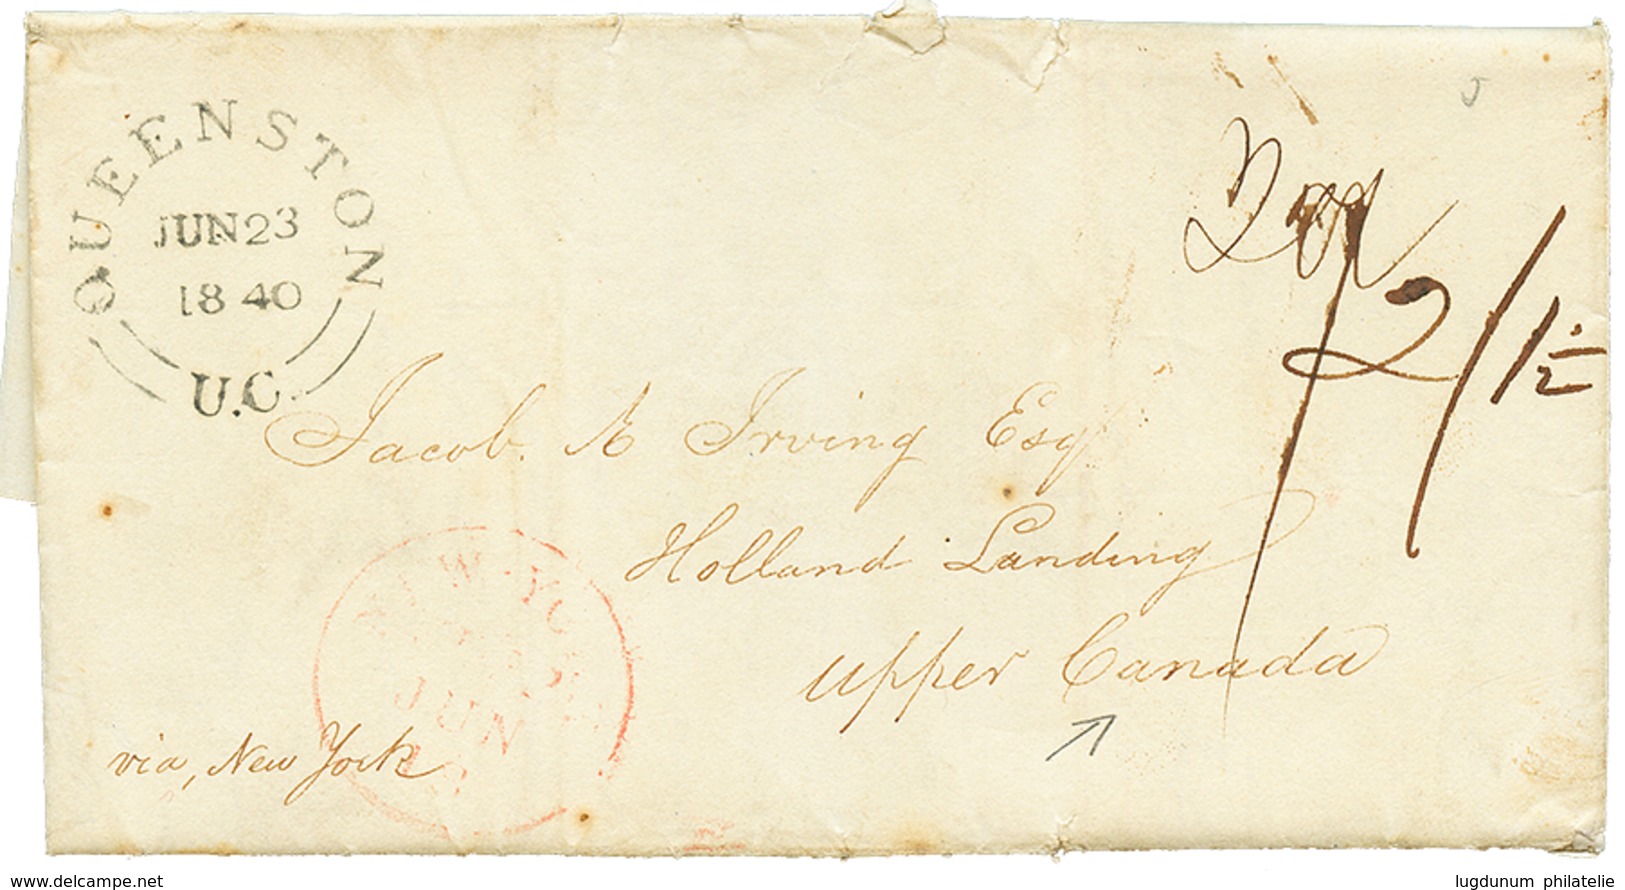 QUEENSTON
JUN 23
1840
U.C.
2/1½
Jacob. A Irving Esq
Holland Landing
Upper Canada
NEW-YORK
JUN
via, New York
www.delcampe.net
lugdunum philatelie